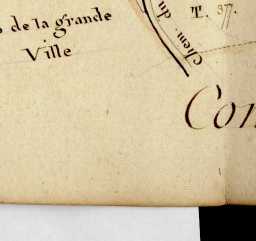 de la grande
Ville
Chem. du
T. 377.
Con